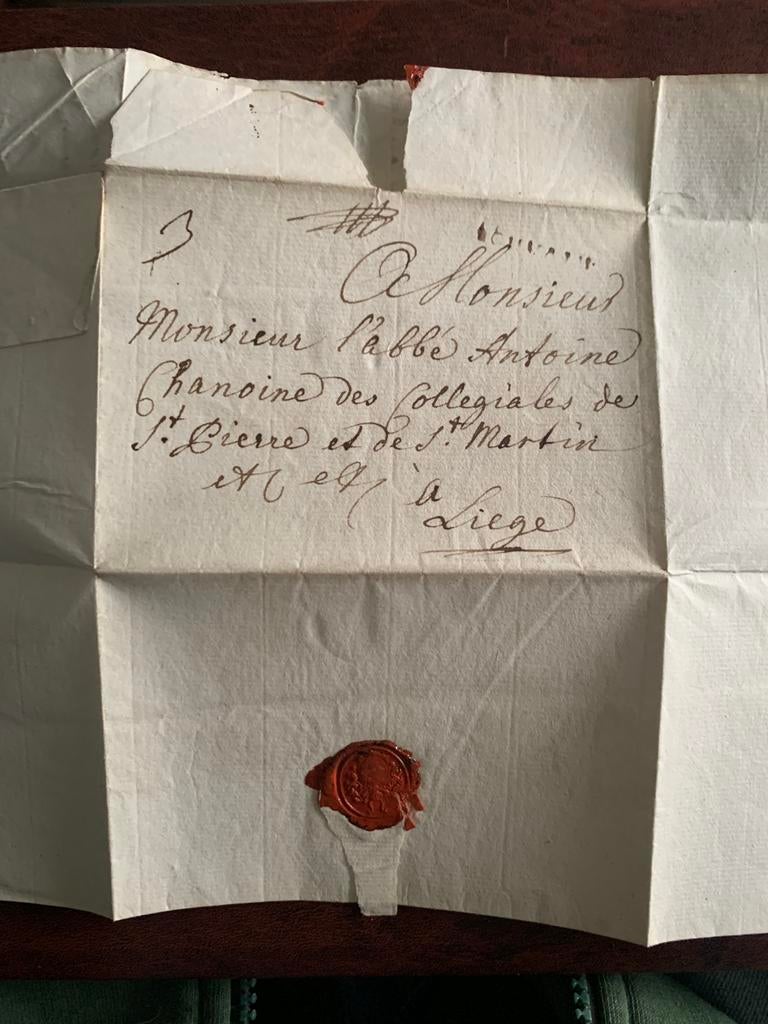 3
A Monsieur
Monsieur l'abbé Antoine
Chanoine des Collegiales de
St. Pierre et de St. Martin
à
Liege